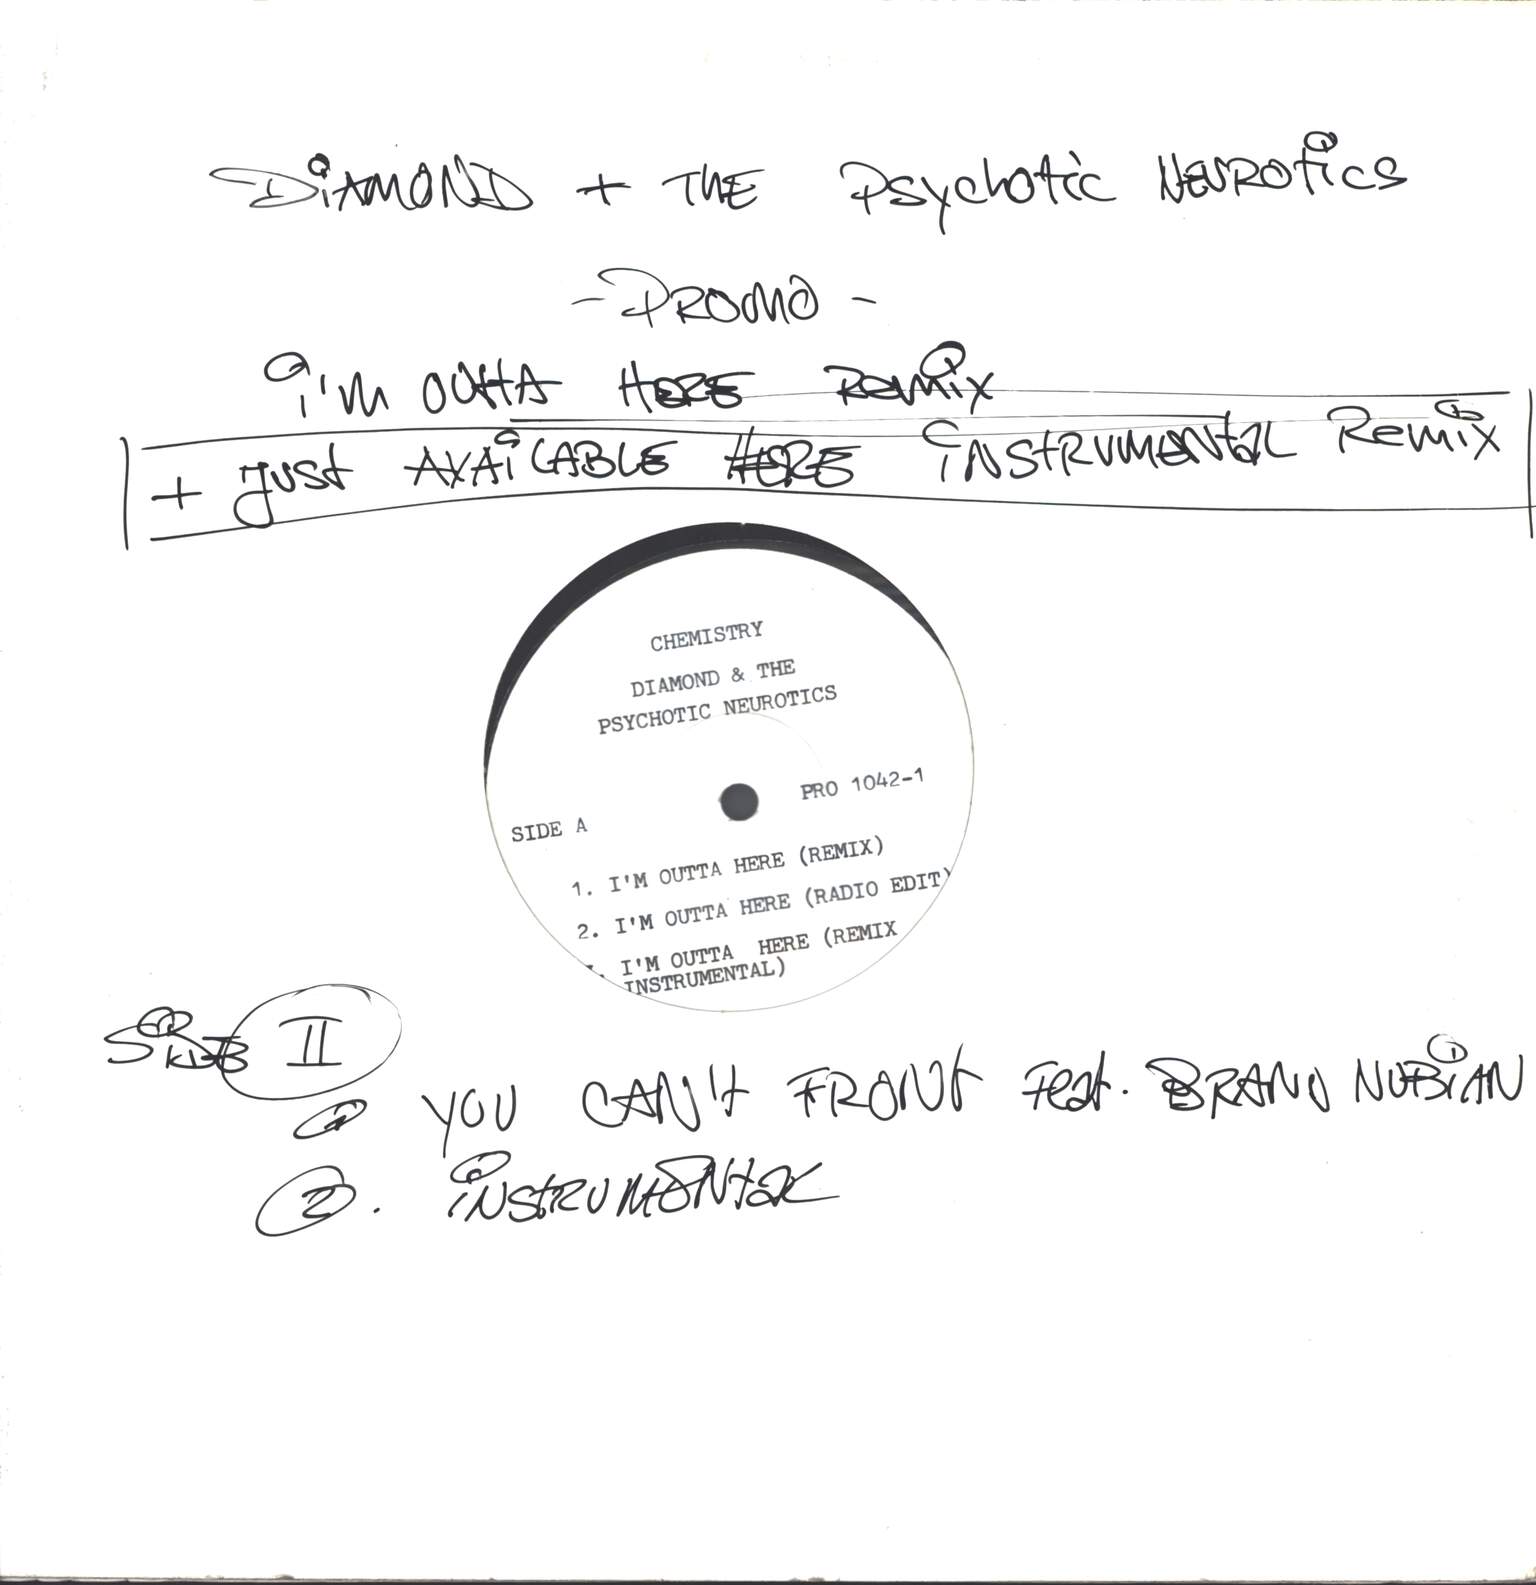 DiAMOND + THE Psychotic NEUROtics
- PROMO -
i'm OUttA HERE Remix
+ just AVAiLABLE HERE iNStRUMENtAL Remix
CHEMISTRY
DIAMOND & THE
PSYCHOTIC NEUROTICS
PRO 1042-1
SIDE A
1. I'M OUTTA HERE (REMIX)
2. I'M OUTTA HERE (RADIO EDIT)
. I'M OUTTA HERE (REMIX
INSTRUMENTAL)
SiDE II
1 YOU CAN't FRONt Feat. BRAND NUBiAN
2. iNStRUMENtAL